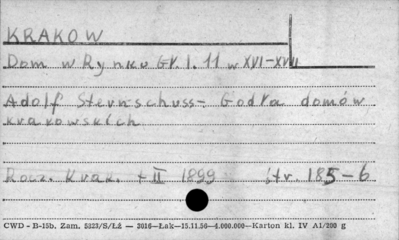 KRAKOW
Dom w Rynku Gł. l. 11 w XVI-XVII
Adolf Sternschuss - Godła domów
krakowskich
Rocz. Krak. t II 1899 str. 185-6
CWD - B-15b. Zam. 5323/S/Łź — 3016—Łak—15.11.56—4.000.000—Karton kl. IV A1/200 g